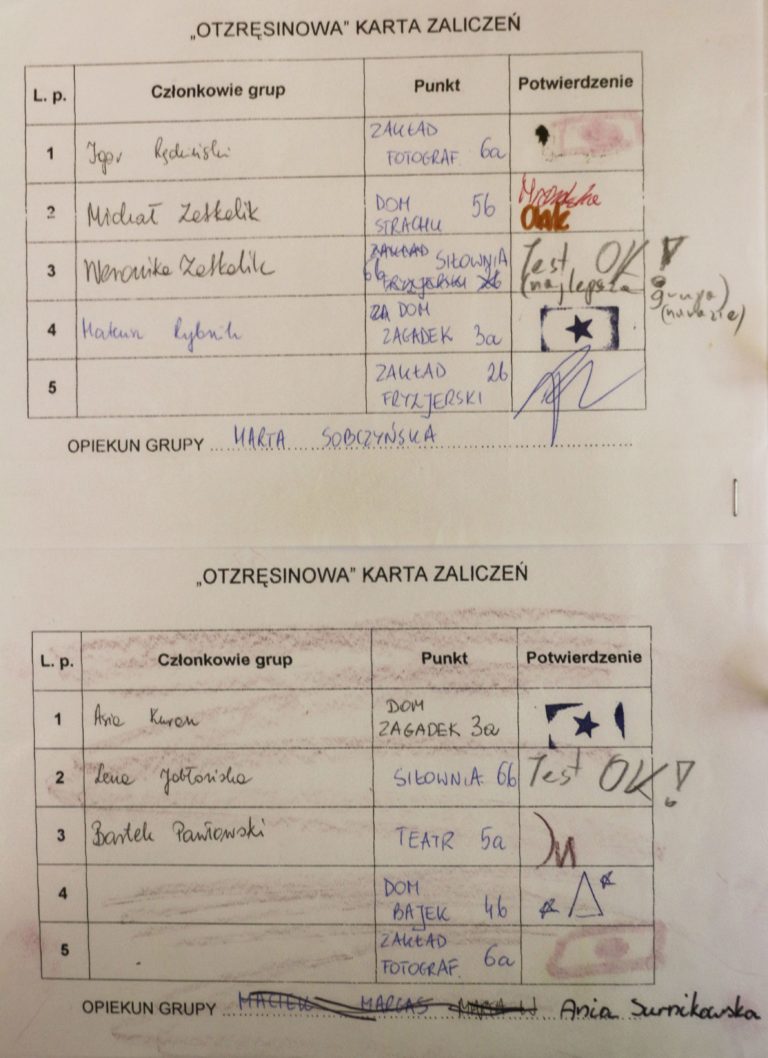 „OTZRĘSINOWA” KARTA ZALICZEŃ
L. p. Członkowie grup Punkt Potwierdzenie
1 Igor ZAKŁAD
FOTOGRAF. 6a
2 Michał Zetkelik DOM 5b
STRACHU
3 Weronika Zetkelik ZAKŁAD SIŁOWNIA Test OK!
6b FRYZJERSKI (najlepsza grupa)
(na razie)
4 Rybnik ZA DOM
ZAGADEK 3a
5 ZAKŁAD 2b
FRYZJERSKI
OPIEKUN GRUPY MARTA SOBCZYŃSKA
„OTZRĘSINOWA” KARTA ZALICZEŃ
L. p. Członkowie grup Punkt Potwierdzenie
1 Asia Kuron DOM
ZAGADEK 3a
2 Lena Jabłońska SIŁOWNIA 6b Test OK!
3 Bartek Pawłowski TEATR 5a
4 DOM
BAJEK 4b
5 ZAKŁAD
FOTOGRAF. 6a
OPIEKUN GRUPY MACIEK Ania Surnikowska